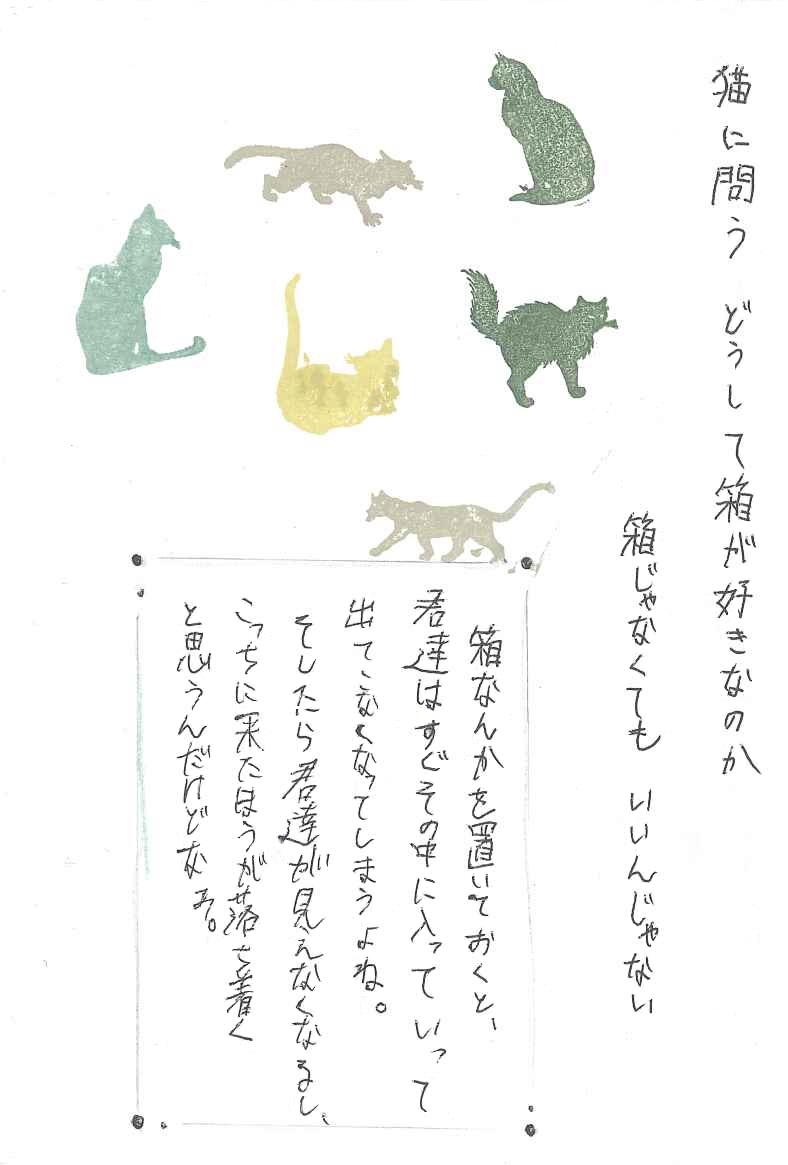 猫に問う どうして箱が好きなのか
箱じゃなくても いいんじゃない
箱なんかを置いておくと、
君達はすぐその中に入っていって
出てこなくなってしまうよね。
そしたら君達が見えなくなるし、
こっちに来たほうが落ち着く
と思うんだけどなぁ。